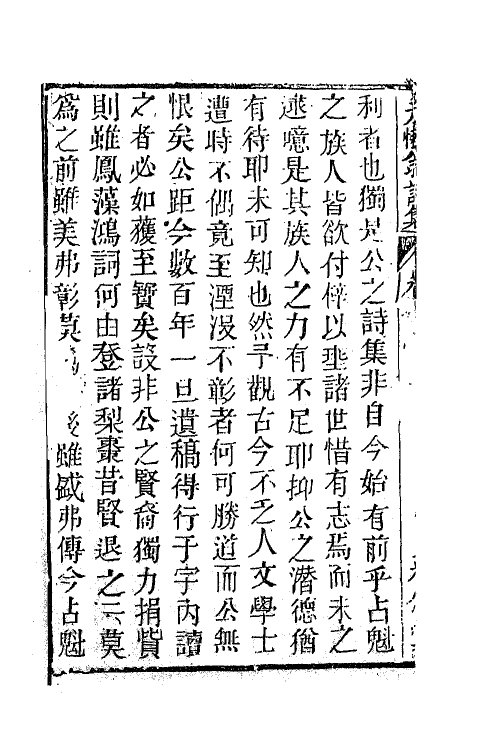 利者也獨是公之詩集非自今始有前乎占魁
之族人皆欲付梓以垂諸世惜有志焉而未之
逮噫是其族人之力有不足耶抑公之潛德猶
有待耶未可知也然予觀古今不乏人文學士
遭時不偶竟至湮沒不彰者何可勝道而公無
恨矣公距今數百年一旦遺稿得行于宇內讀
之者必如獲至寶矣設非公之賢裔獨力捐貲
則雖鳳藻鴻詞何由登諸梨棗昔賢退之云莫
爲之前雖美弗彰莫雖盛弗傳今占魁